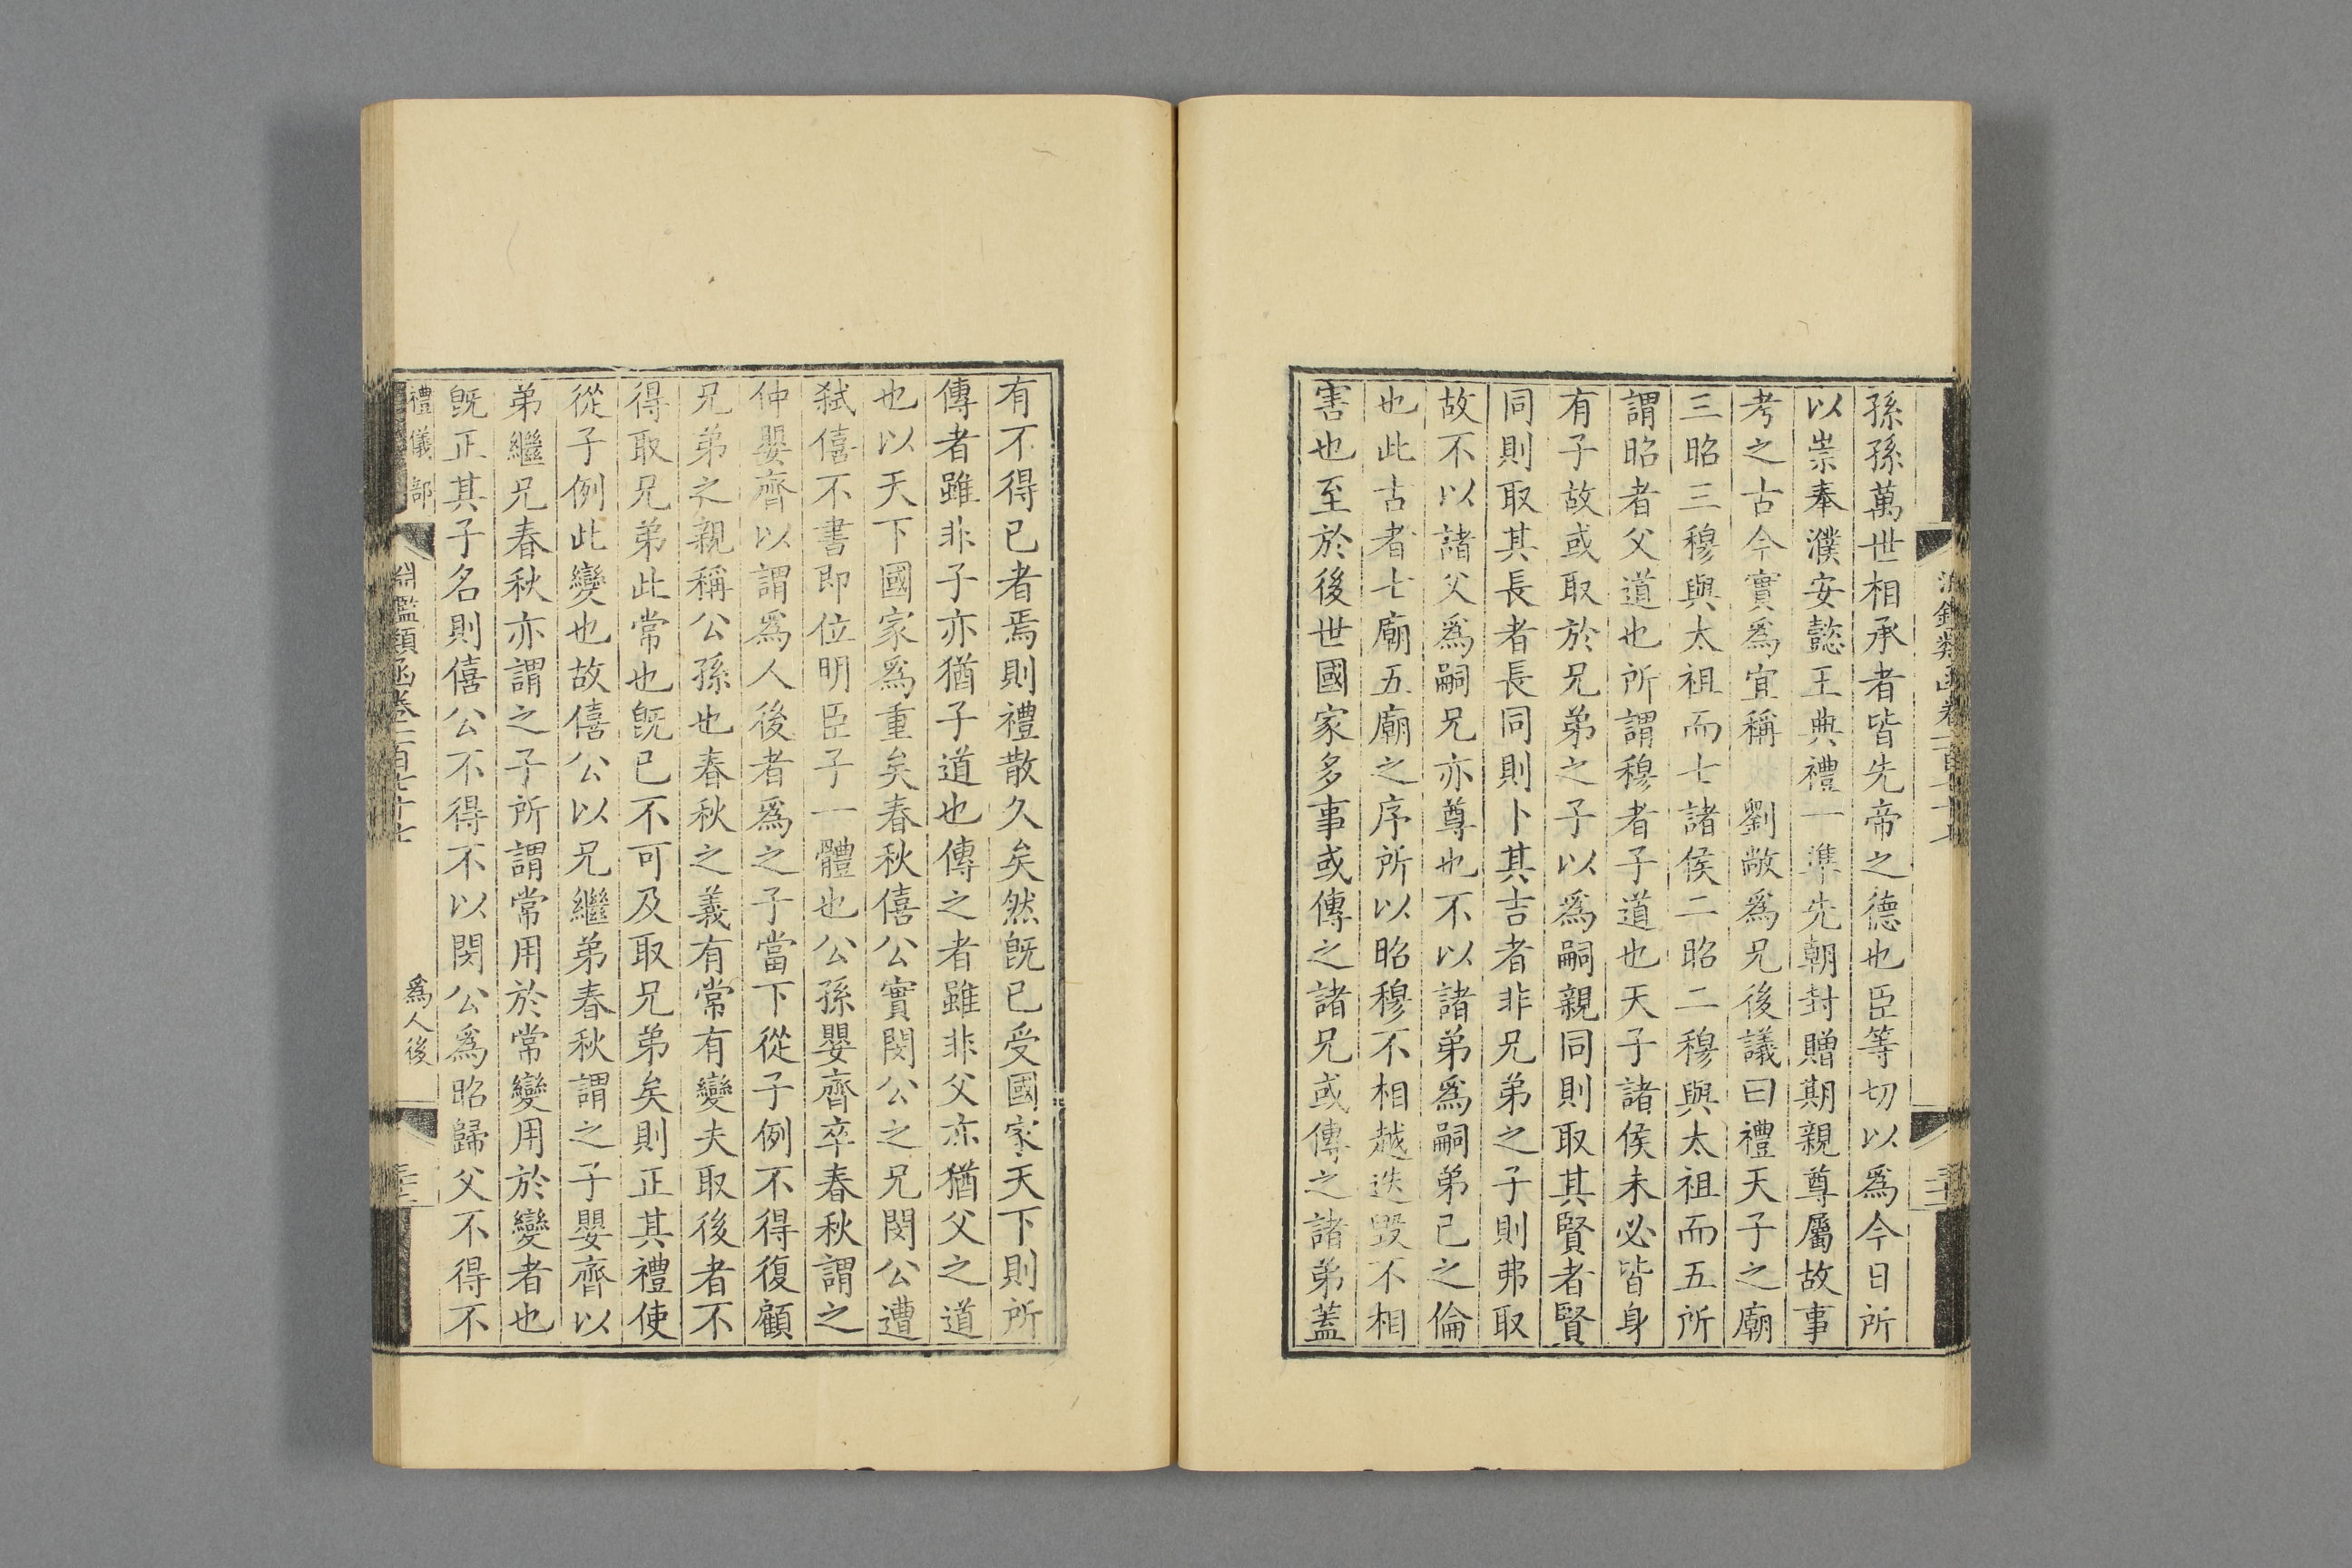 孫孫萬世相承者皆先帝之德也臣等切以爲今日所
以崇奉濮安懿王典禮一準先朝封贈期親尊屬故事
考之古今實爲宜稱　劉敞爲兄後議曰禮天子之廟
三昭三穆與太祖而七諸侯二昭二穆與太祖而五所
謂昭者父道也所謂穆者子道也天子諸侯未必皆身
有子故或取於兄弟之子以爲嗣親同則取其賢者賢
同則取其長者長同則卜其吉者非兄弟之子則弗取
故不以諸父爲嗣兄亦尊也不以諸弟爲嗣弟已之倫
也此古者七廟五廟之序所以昭穆不相越迭毀不相
害也至於後世國家多事或傳之諸兄或傳之諸弟蓋
有不得已者焉則禮散久矣然旣已受國家天下則所
傳者雖非子亦猶子道也傳之者雖非父亦猶父之道
也以天下國家爲重矣春秋僖公實閔公之兄閔公遭
弒僖不書即位明臣子一體也公孫嬰齊卒春秋謂之
仲嬰齊以謂爲人後者爲之子當下從子例不得復顧
兄弟之親稱公孫也春秋之義有常有變夫取後者不
得取兄弟此常也旣已不可及取兄弟矣則正其禮使
從子例此變也故僖公以兄繼弟春秋謂之子嬰齊以
弟繼兄春秋亦謂之子所謂常用於常變用於變者也
旣正其子名則僖公不得不以閔公爲昭歸父不得不
禮儀部
淵鑑類函卷一百七十七
爲人後